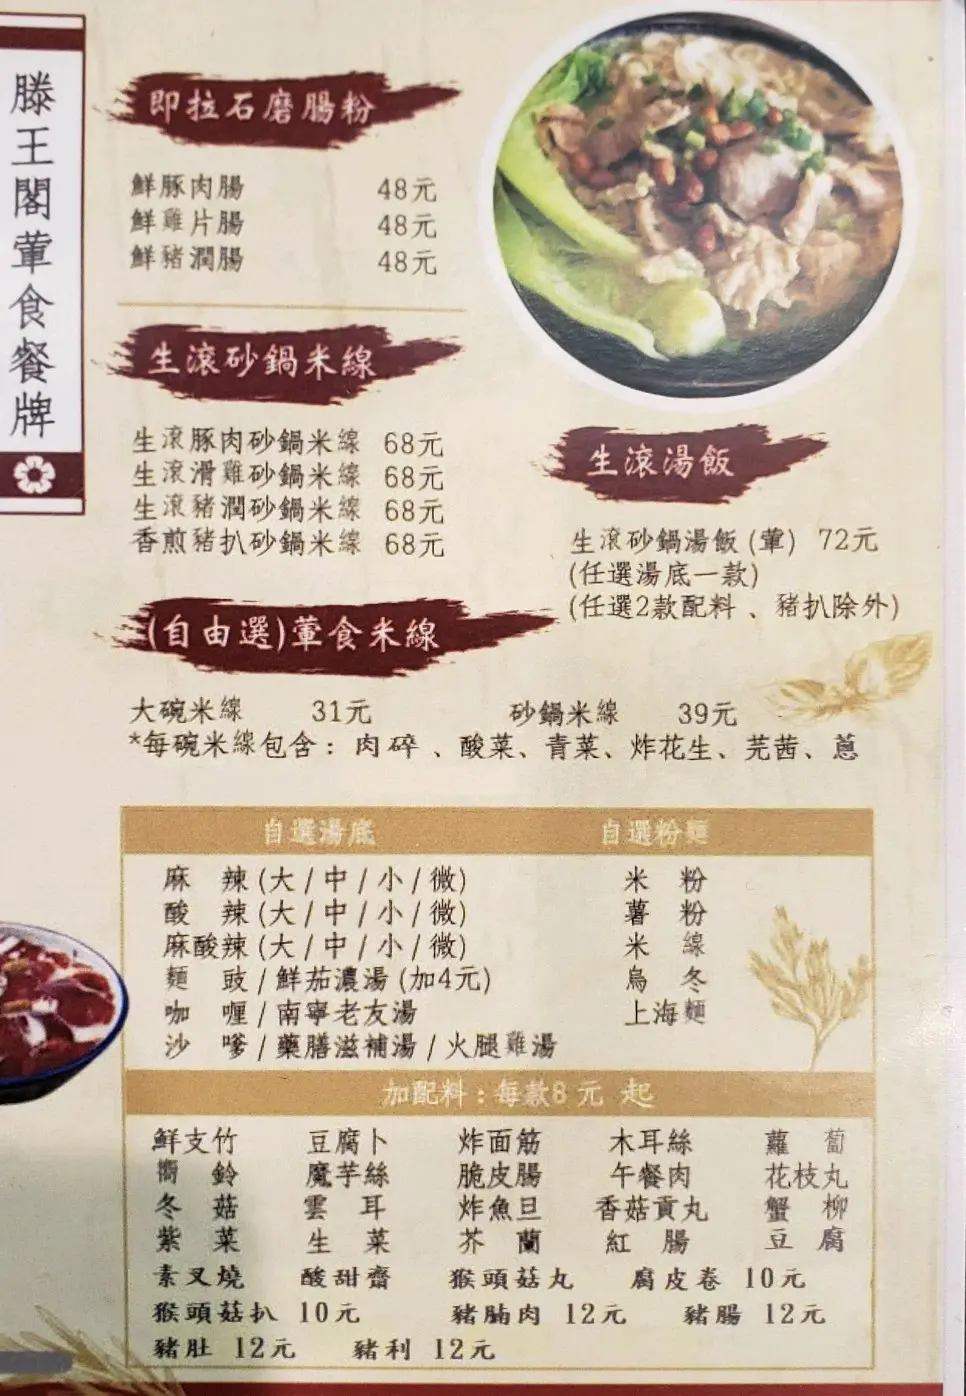 滕王閣葷食餐牌
即拉石磨腸粉
鮮豚肉腸 48元
鮮雞片腸 48元
鮮豬潤腸 48元
生滾砂鍋米線
生滾豚肉砂鍋米線 68元
生滾滑雞砂鍋米線 68元
生滾豬潤砂鍋米線 68元
香煎豬扒砂鍋米線 68元
生滾湯飯
生滾砂鍋湯飯(葷) 72元
(任選湯底一款)
(任選2款配料、豬扒除外)
(自由選)葷食米線
大碗米線 31元 砂鍋米線 39元
*每碗米線包含：肉碎、酸菜、青菜、炸花生、芫茜、蔥
自選湯底 自選粉麵
麻辣(大/中/小/微) 米粉
酸辣(大/中/小/微) 薯粉
麻酸辣(大/中/小/微) 米線
麵豉/鮮茄濃湯(加4元) 烏冬
咖喱/南寧老友湯 上海麵
沙嗲/藥膳滋補湯/火腿雞湯
加配料：每款8元 起
鮮支竹 豆腐卜 炸面筋 木耳絲 蘿蔔
嚮鈴 魔芋絲 脆皮腸 午餐肉 花枝丸
冬菇 雲耳 炸魚旦 香菇貢丸 蟹柳
紫菜 生菜 芥蘭 紅腸 豆腐
素叉燒 酸甜齋 猴頭菇丸 腐皮卷 10元
猴頭菇扒 10元 豬腩肉 12元 豬腸 12元
豬肚 12元 豬利 12元